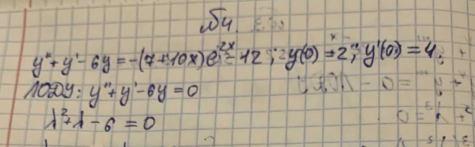 №4.
y"+y'-6y=-(7+10x)e^{2x}-12; y(0)=2; y'(0)=4.
ЛОДУ: y"+y'-6y=0
λ²+λ-6=0